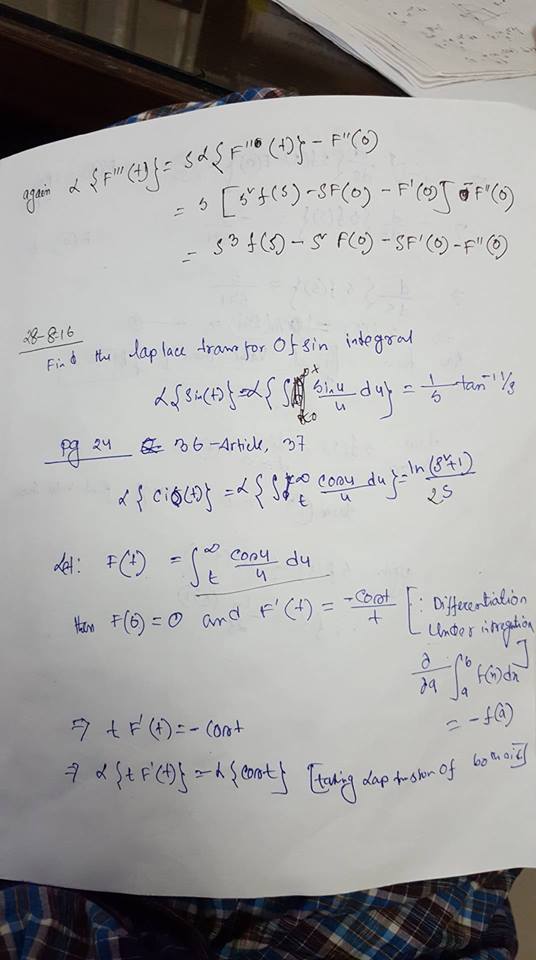 again α {F'''(t)} = s α {F''(t)} - F''(0)
= s [s² f(s) - SF(0) - F'(0)] - F''(0)
= s³ f(s) - s² F(0) - SF'(0) - F''(0)
28-8-16
Find the laplace transfor Of sin integral
α {sin(t)} = α {∫₀ᵗ sin u/u du} = 1/s tan⁻¹ 1/s
Pg 24 36-Article, 37
α {ci(t)} = α {∫ₜ^∞ cos u/u du} = ln(s²+1)/2s
Let: F(t) = ∫ₜ^∞ cos u/u du
then F(0) = 0 and F'(t) = -cos t/t [: Differentiation
Under intregration
∂/∂a ∫ₐᵇ f(x) dx]
= -f(a)
⇒ t F'(t) = - cos t
⇒ α {t F'(t)} = -α {cos t} [taking Lap of both